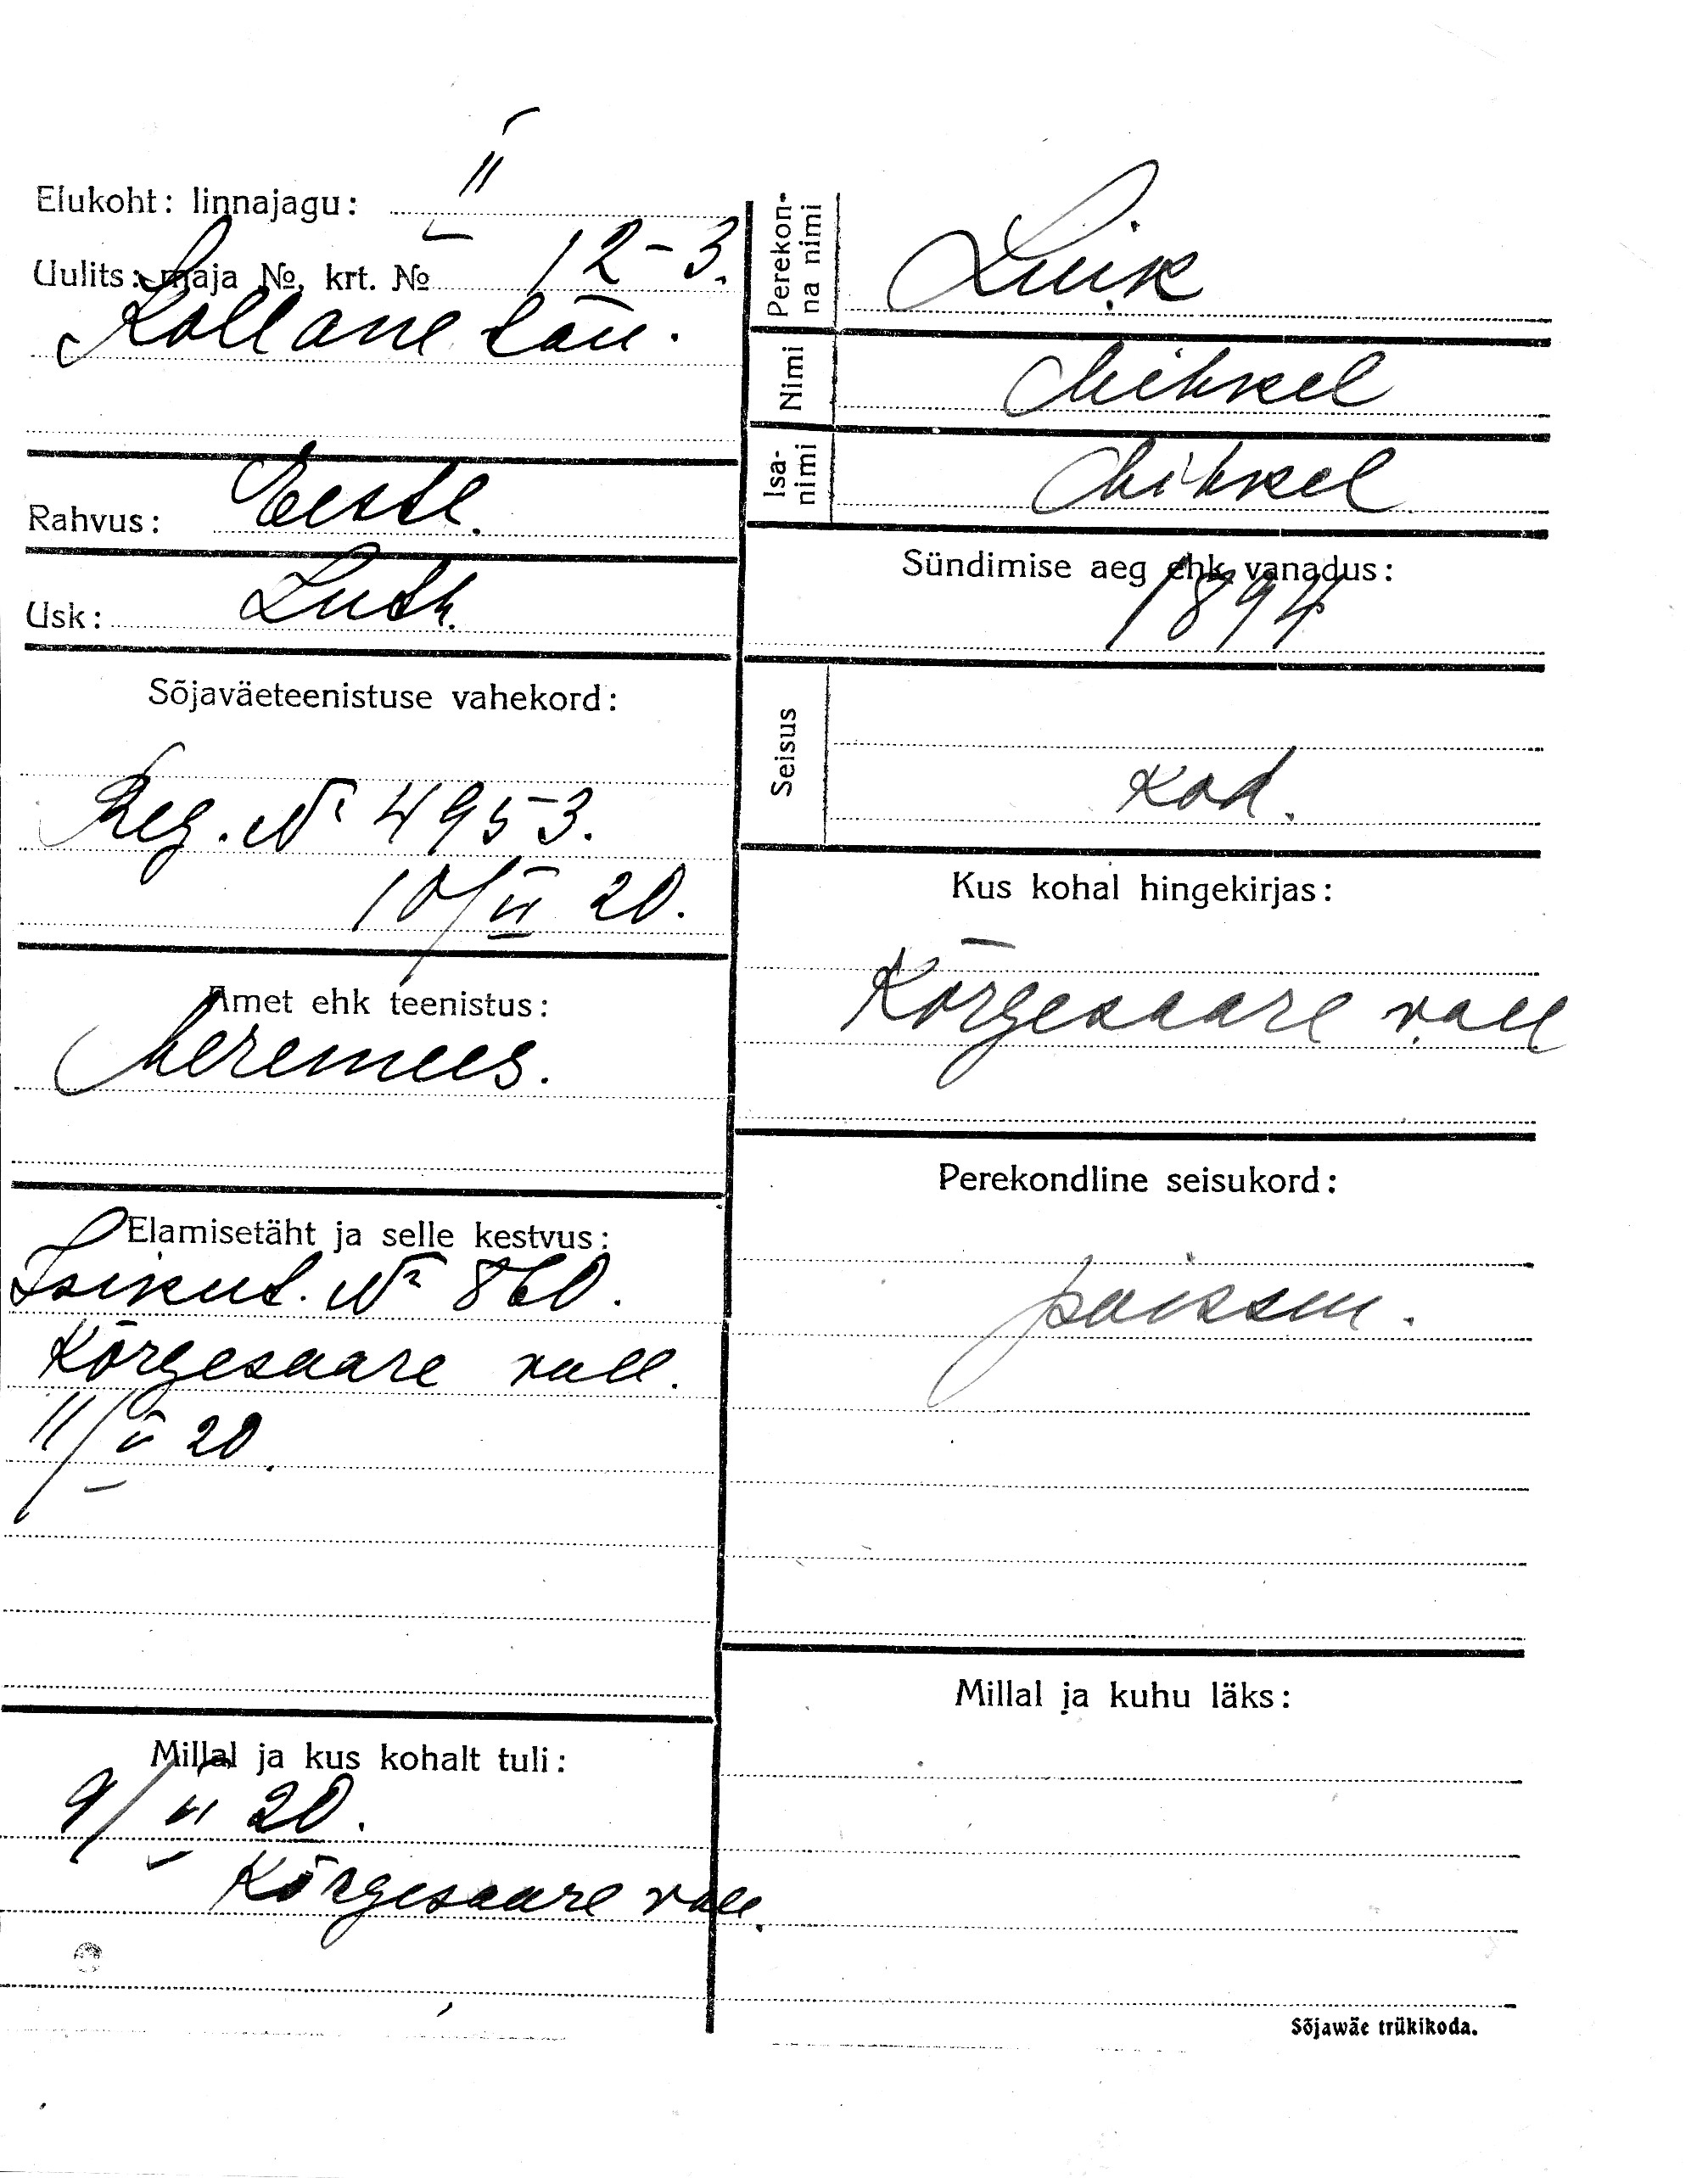 Elukoht: linnajagu: II
Uulits: maja №, krt. № 12-3.
Kollane tän.
Rahvus: Eestl.
Usk: Luth.
Sõjaväeteenistuse vahekord:
Reg. № 4953.
10/VI 20.
Amet ehk teenistus:
Meremees.
Elamisetäht ja selle kestvus:
Isikut. № 860.
Kõrgesaare vall.
11/V 20.
Millal ja kus kohalt tuli:
9/VI 20.
Kõrgesaare vall.
Perekon-
na nimi
Luik
Nimi
Mihkel
Isa-
nimi
Mihkel
Sündimise aeg ehk vanadus:
1894
Seisus
kod.
Kus kohal hingekirjas:
Kõrgesaare vall
Perekondline seisukord:
poissm.
Millal ja kuhu läks:
Sõjawäe trükikoda.